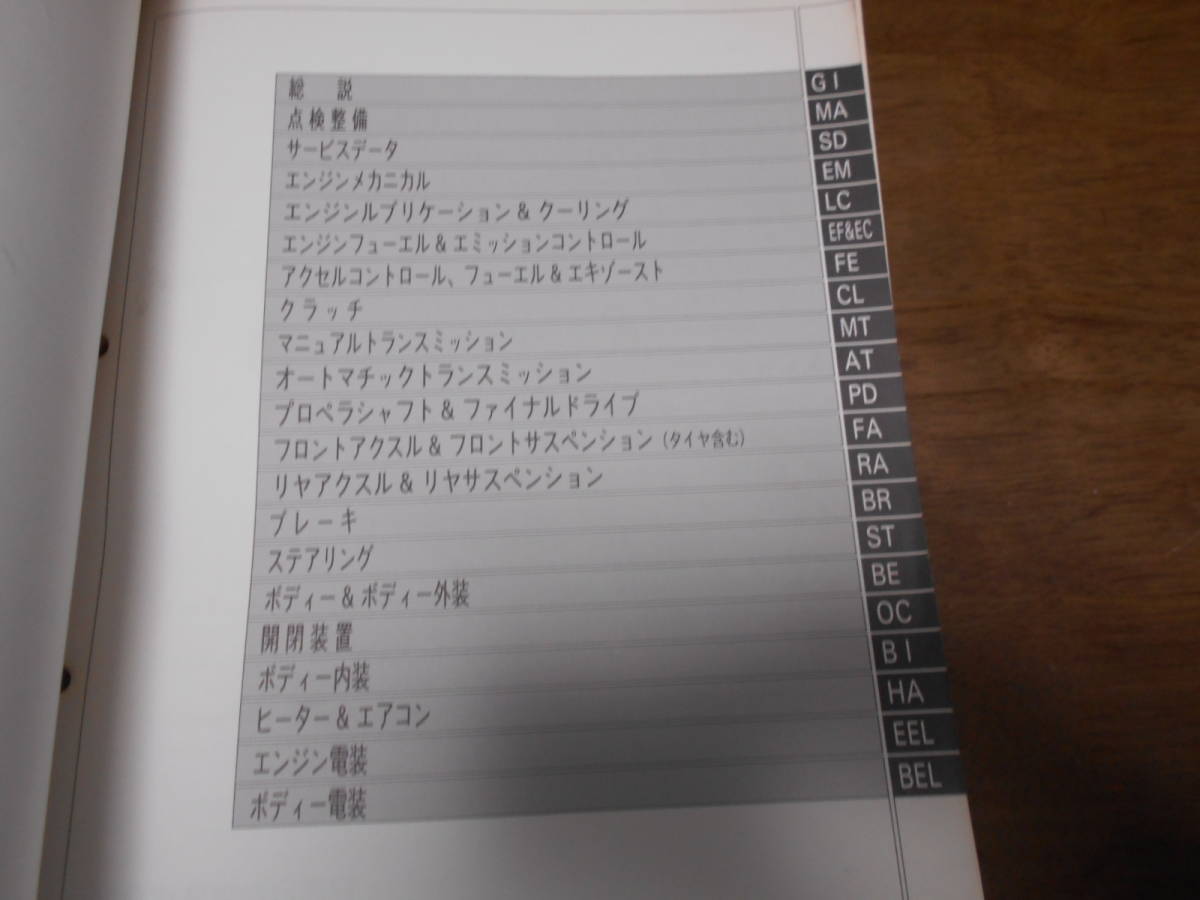 総　説 GI
点検整備 MA
サービスデータ SD
エンジンメカニカル EM
エンジンルブリケーション & クーリング LC
エンジンフューエル & エミッションコントロール EF&EC
アクセルコントロール、フューエル & エキゾースト FE
クラッチ CL
マニュアルトランスミッション MT
オートマチックトランスミッション AT
プロペラシャフト & ファイナルドライブ PD
フロントアクスル & フロントサスペンション (タイヤ含む) FA
リヤアクスル & リヤサスペンション RA
ブレーキ BR
ステアリング ST
ボディー & ボディー外装 BE
開閉装置 OC
ボディー内装 BI
ヒーター & エアコン HA
エンジン電装 EEL
ボディー電装 BEL